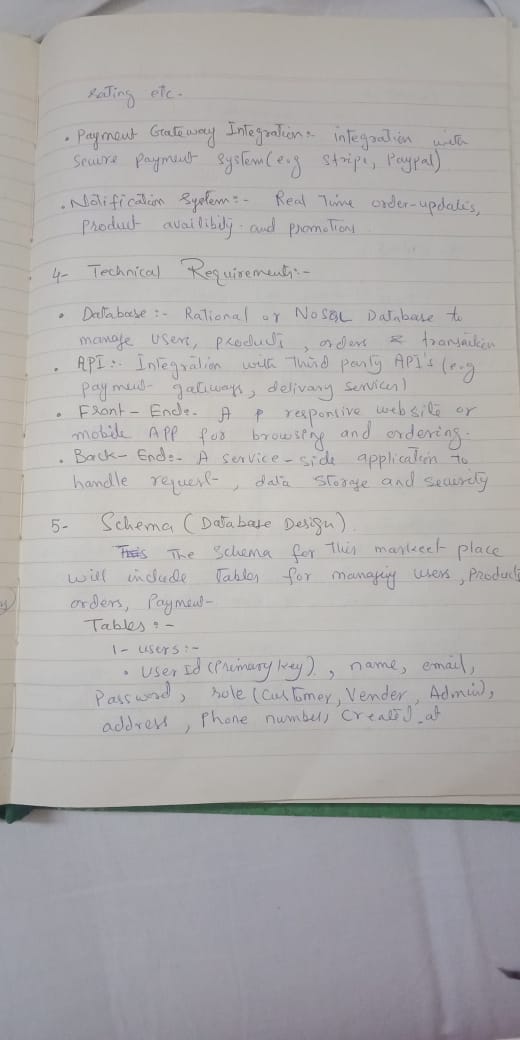 rating etc.
• Payment Gateway Integration:- integration with
secure payment system (e.g stripe, Paypal)
• Notification System:- Real Time order-updates,
product availibily and promotions
4- Technical Requirements:-
• Database :- Rational or NoSQL Database to
manage users, products, orders & transaction
• API :- Integration with Third party API's (e.g
payment gateways, delivary services)
• Front-End:- A responsive website or
mobile APP for browsing and ordering.
• Back-End:- A service-side application to
handle request, data storage and security
5- Schema (Database Design)
The Schema for this markeet place
will include Tables for managing users, Products
orders, Payment-
Tables :-
1- users :-
• User Id (Primary key), name, email,
Password, role (Customer, Vender, Admin),
address, Phone number, Created_at